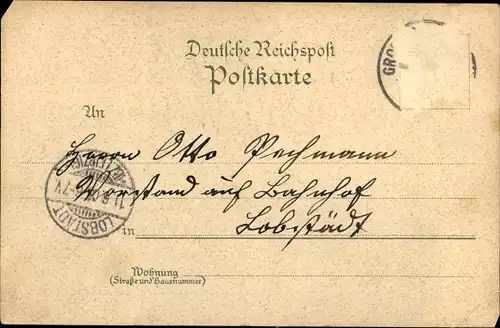 Deutsche Reichspost
Postkarte
GRO
An
Herrn Otto Pechmann
Vorstand auf Bahnhof
in Lobstädt
Wohnung
(Straße und Hausnummer)
LOBSTÄDT